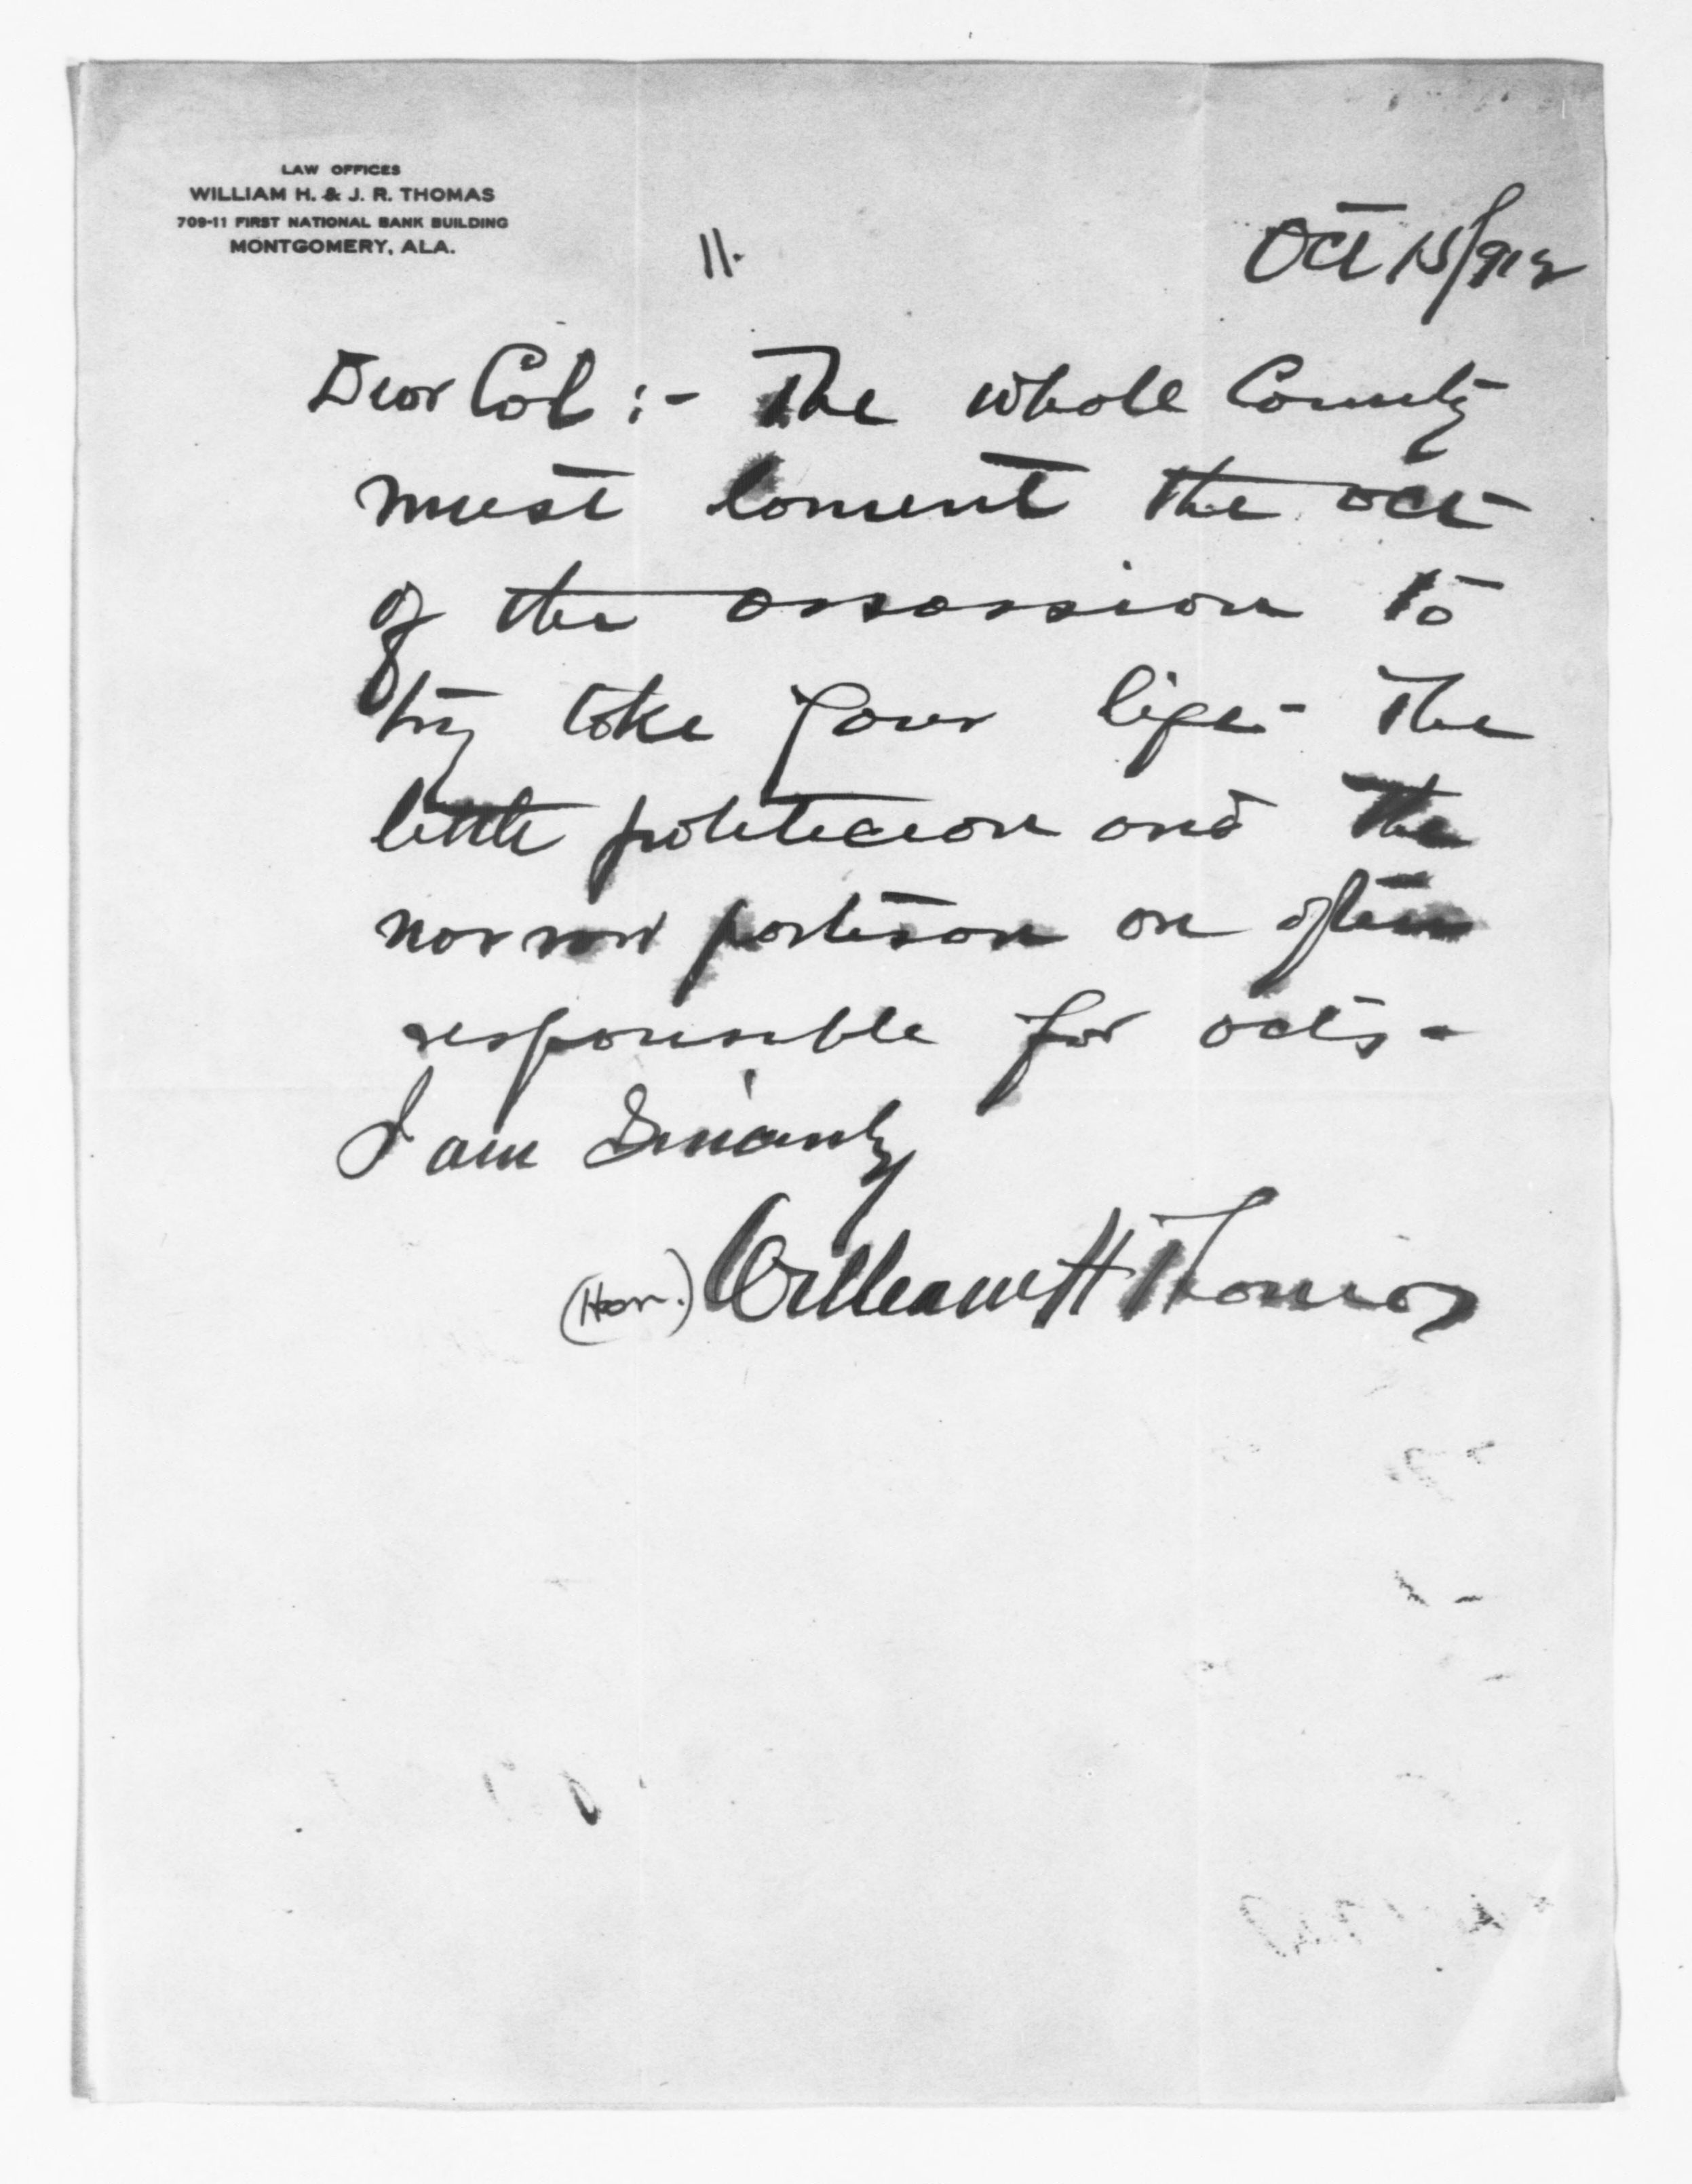 LAW OFFICES
WILLIAM H. & J. R. THOMAS
709-11 FIRST NATIONAL BANK BUILDING
MONTGOMERY, ALA.
11.
Oct 15/912
Dear Col :- The whole County
must lament the act
of the assassian to
try take your life - The
little politician and the
narrow partisan are often
responsible for acts -
I am Sincerely
(Hon.) William H Thomas